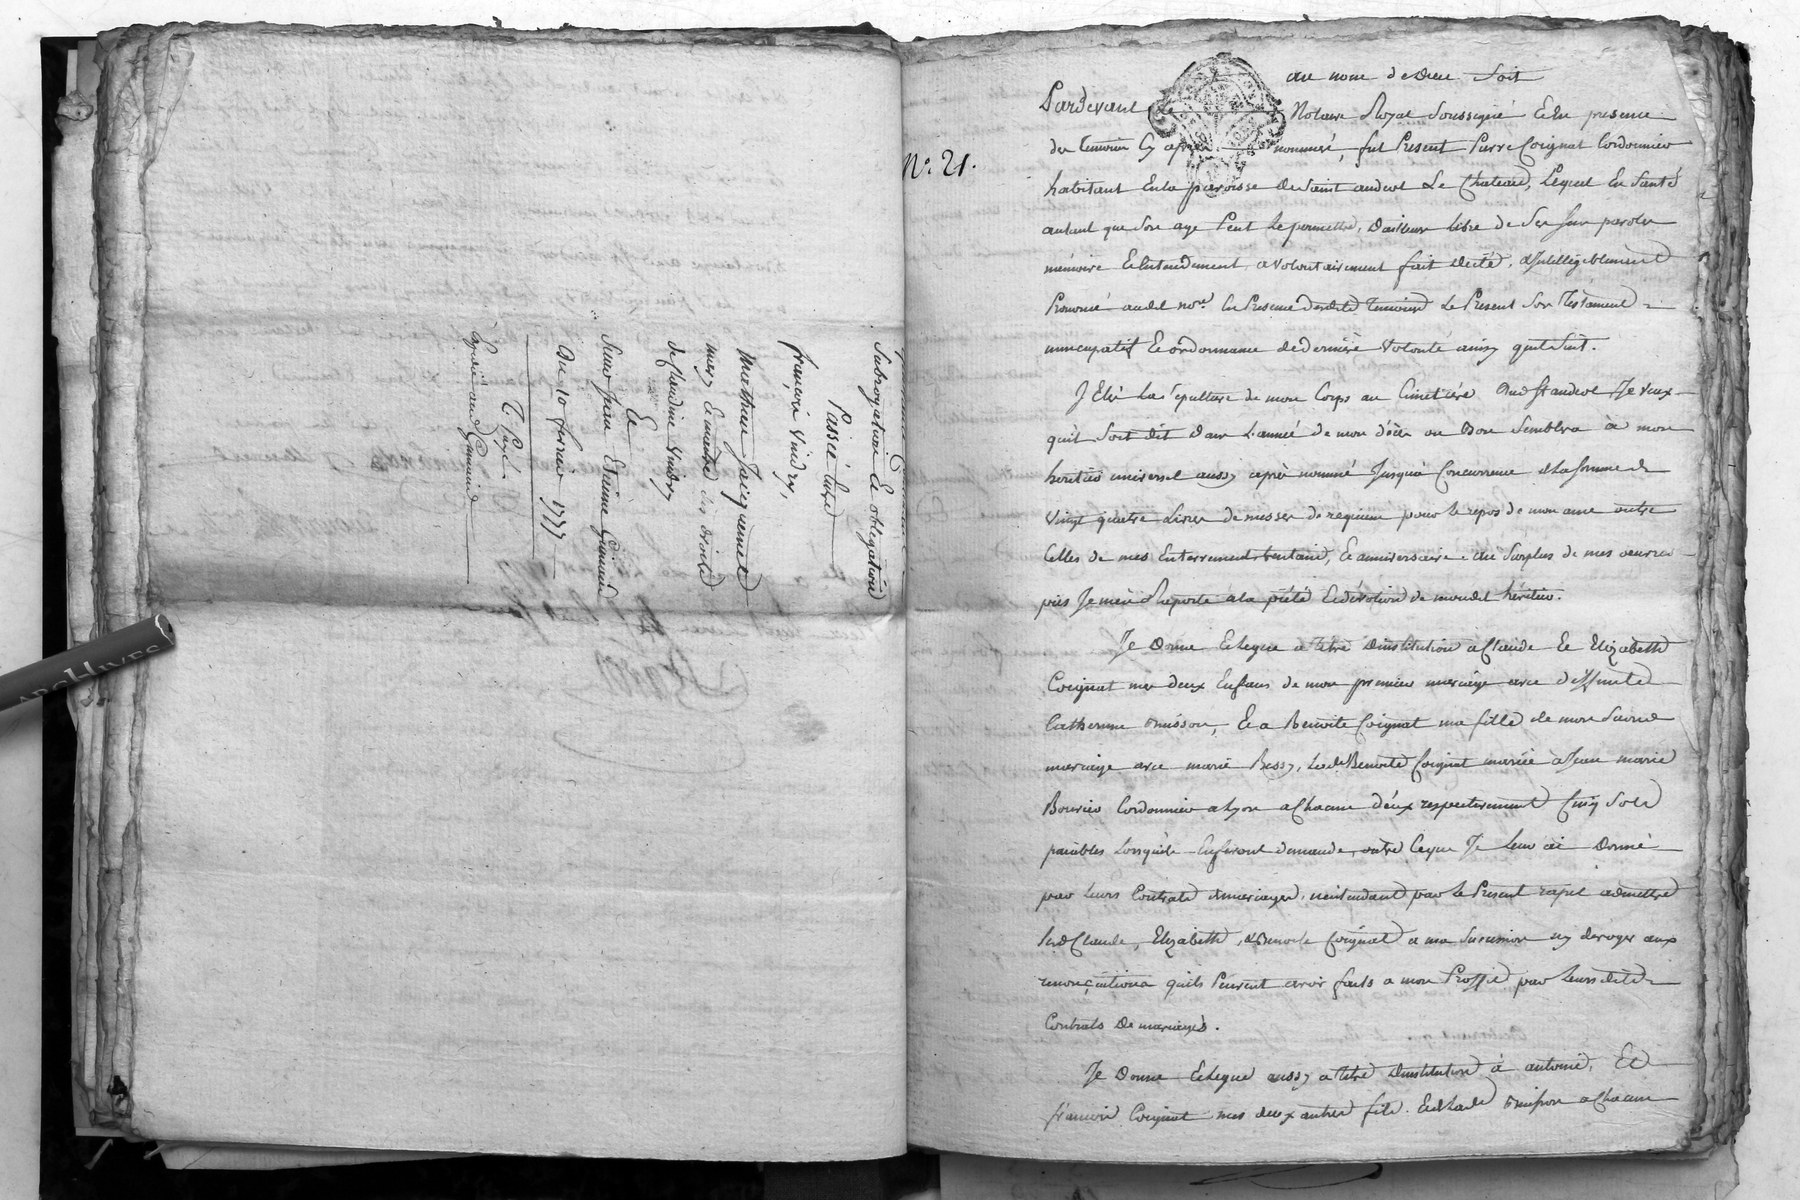 Subrogatoire & obligation
Passée Entre
françois Vindry,
Mathieu Jacquemet
mary & maitre des droits
de Claudine Vindry
Et
Sieur Jean Etienne Guimand
Du 10 fevrier 1777
N.º 21.
au nom de Dieu Soit
Pardevant Le Notaire Royal Soussigné & En presence
des temoins Cy après nommés, fut Present Pierre Coignat Cordonnier
habitant En la paroisse de Saint andeol Le Chateau, Lequel En Santé
autant que Son age Peut le permettre, D'ailleurs libre de Ses Sens parole
memoire & Entendement, a volontairement fait dicté, & Intelligiblement
Prononcé audit no.re En Presence desdits temoins Le Present Son Testament
nuncupatif & ordonnance de derniere Volonté ainsy qu'il Suit.
J'Elis La Sepulture de mon Corps au Cimetiére dud St andeol Je veux
qu'il Soit dit dans L'année de mon décès ou Bon Semblera à mon
heritier universel aussy aprés nommé Jusqu'a Concurrence de La Somme de
Vingt quatre Livres de messes de requiem pour le repos de mon ame outre
Celles de mes Enterrement, & anniversaire. au Surplus de mes oeuvres
pies Je m'en Rapporte a la piété & dévotion de mondit héritier.
Je Donne & Legue a titre D'institution a Claude & Elizabeth
Coignat mes deux Enfans de mon premier mariage avec deffunte
Catherine Brisson, & a Benoite Coignat ma fille de mon Second
mariage avec marie Bessy, Lade Benoite Coignat mariée à Jean marie
Bourier Cordonnier a Lyon a Chacun d'eux respectivement Cinq Sols
paiables Lorsqu'ils En feront demande, outre Ceque Je Leur ai Donné
par Leurs Contrats de mariages, n'entendant par Le Present rapel admettre
Lesd Claude, Elizabeth, & Benoite Coignat a ma Succession ny deroger aux
renonçiations qu'ils Peuvent avoir faits a mon Proffit par Leurs dits
Contrats De mariages.
Je Donne & Legue aussy a titre D'institution à antoine, Et
françois Coignat mes deux autres fils. & deLade Brisson a Chacun